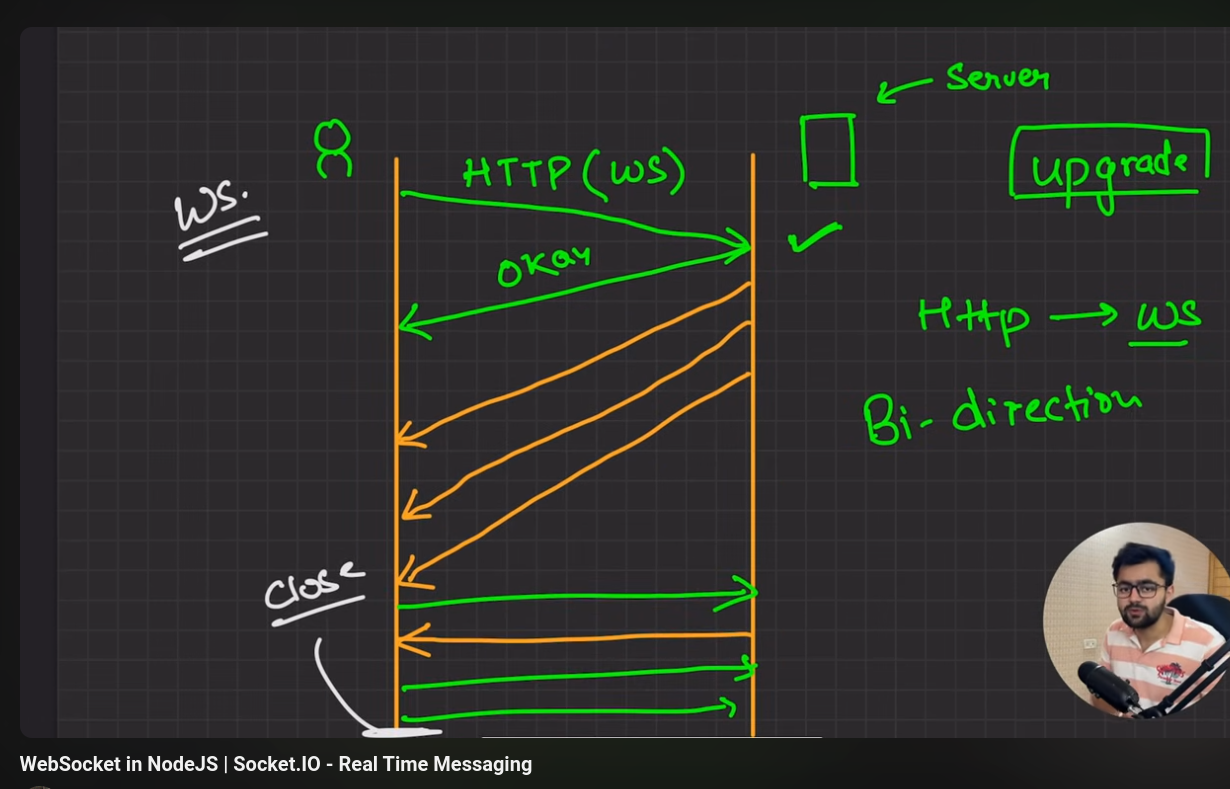 Server
HTTP (WS)
upgrade
WS.
okay
Http → WS
Bi-direction
close
WebSocket in NodeJS | Socket.IO - Real Time Messaging